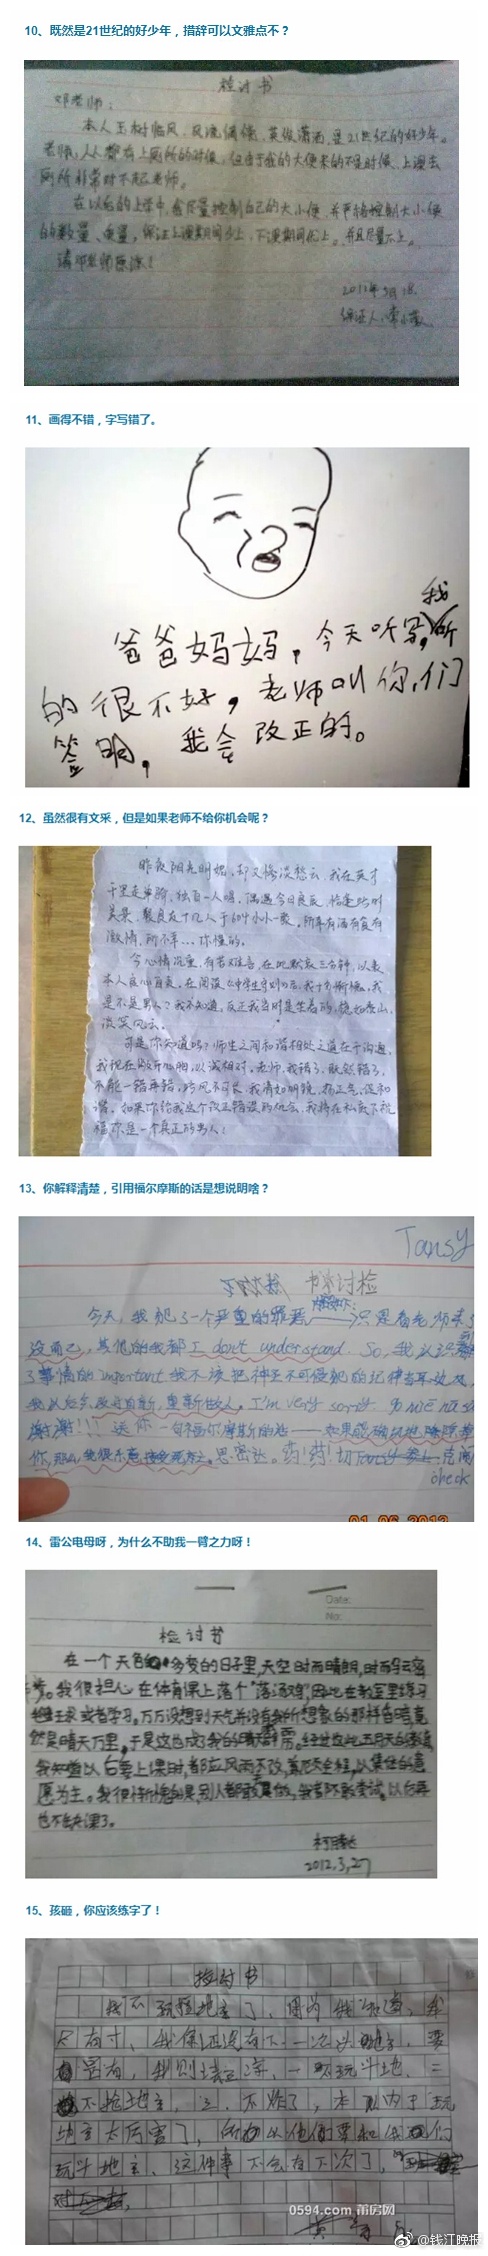 10、既然是21世纪的好少年，措辞可以文雅点不？
检讨书
邓老师：
本人玉树临风、风流倜傥、英俊潇洒，是21世纪的好少年。
老师，人人都有上厕所的时候，但由于我的大便来的不是时候、上课去
厕所非常对不起老师。
在以后的上学中，我尽量控制自己的大小便，并严格控制大小便
的数量、质量，保证上课期间少上，下课期间优上。并且尽量不上。
请邓老师原谅！
2011年3月1
保证人：李小
11、画得不错，字写错了。
爸爸妈妈，今天听写，我
的很不好，老师叫你们
签明，我会改正的。
12、虽然很有文采，但是如果老师不给你机会呢？
昨夜阳光明媚，却又惨淡愁云，我在英才
千里走单骑，独自一人唱，偶遇今日良辰，恰是此时
美景，聚良友十几人于604小小一聚。所幸有酒有食有
激情，所不幸…你懂的。
今心情沉重，有苦难言，在此默哀三分钟，以表
本人良心自责，在阅读《中学生守则》后，我十分惭愧。我
是不是男人？我不知道，反正我当时是坐着的，稳如泰山，
谈笑风云。
可是你知道吗？师生之间和谐相处之道在于沟通，
我现在敞开心胸，以诚相对，老师，我错了，既然错了，
不能一错再错，歪风不可长，我清如明镜，扬正气，促和
谐。如果你给我这个改正错误的机会，我将在私底下祝
福你是一个真正的男人！
13、你解释清楚，引用福尔摩斯的话是想说明啥？
Tansy
书讨检
今天，我犯了一个严重的罪恶
没而已，其他的我都 I don't understand. So, 我认识到
了事情的important 我不该把神圣不可侵犯的纪律当耳边风，
我以后会改过自新，重新做人。I'm very sorry.
谢谢!!! 送你一句福尔摩斯的话——如果能确切地
你，那么，我很乐意接受死亡。思密达。药!药!切
check
01 06 2012
14、雷公电母呀，为什么不助我一臂之力呀！
Date:
No:
检讨书
在一个天色多变的日子里，天空时而晴朗，时而乌云密
步。我很担心在体育课上落个“落汤鸡”，因此在教室里练习
或者学习。万万没想到天气并没有我所想象的那样 竟
然是晴天万里，于是这也成了我的晴天霹雳。经过
我知道以后要上课时，都应风雨不改，
愿为主。我很 的是，别人都敢 做，我都不敢尝试。以后再
也不缺课了。
2012.3.27
15、孩砸，你应该练字了！
检讨书
我不玩抢地主了，因为我
有寸，我保证没有下一次 地主，要
是有，我则 ，一不玩斗地，二
不抢地主，三，不炸了，本 玩
地主太厉害了，所以他们要和我们
玩斗地主，这件事不会有下次了，
0594.com 莆房网
@钱江晚报